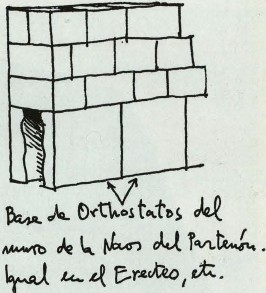 Base de Orthostatos del
muro de la Naos del Partenón.
Igual en el Erecteo, etc.